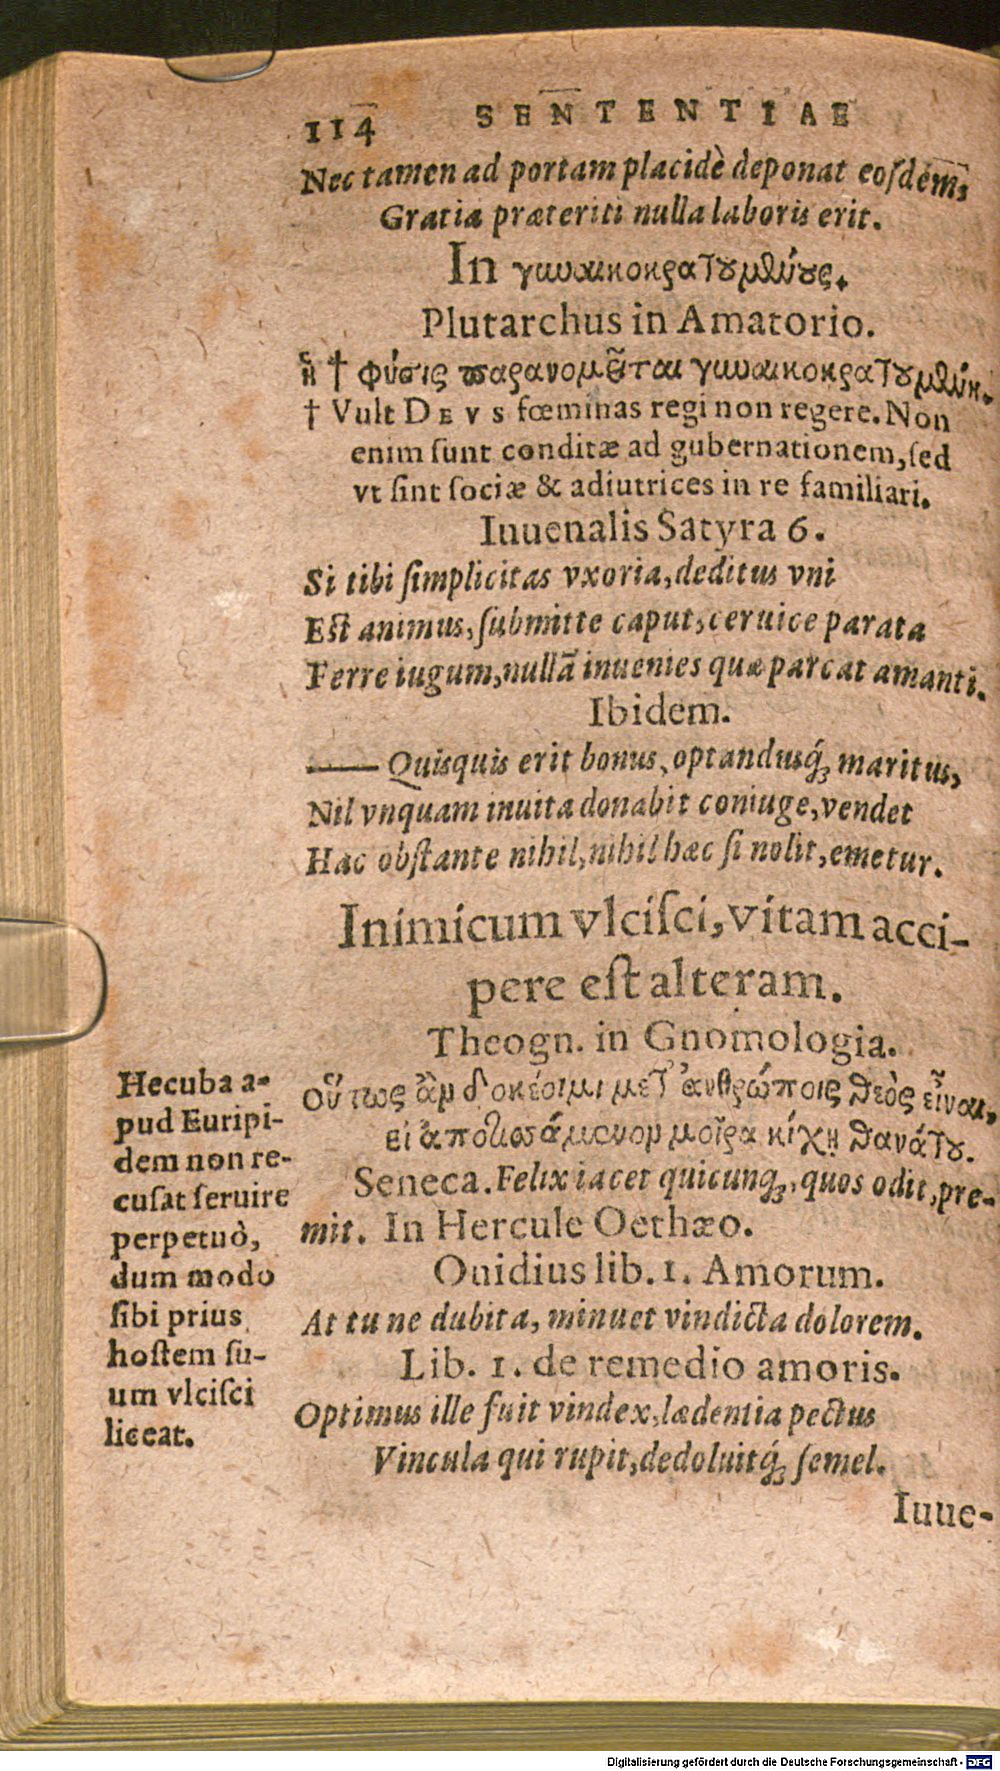 114 SENTENTIAE
Nec tamen ad portam placidè deponat eoſdem,
Gratia præteriti nulla laboris erit.
In γυναικοκρατουμθύους.
Plutarchus in Amatorio.
ἡ † φύσις παρανομεῖται γυναικοκρατουμθύη.
† Vult DEVS fœminas regi non regere. Non
enim ſunt conditæ ad gubernationem, ſed
vt ſint ſociæ & adiutrices in re familiari.
Iuuenalis Satyra 6.
Si tibi ſimplicitas vxoria, deditus vni
Eſt animus, ſubmitte caput, ceruice parata
Ferre iugum, nullā inuenies quæ parcat amanti.
Ibidem.
—— Quisquis erit bonus, optandusq́; maritus,
Nil vnquam inuita donabit coniuge, vendet
Hac obſtante nihil, nihil hæc ſi nolit, emetur.
Inimicum vlciſci, vitam acci-
pere eſt alteram.
Theogn. in Gnomologia.
οὕτως ἂν δοκέοιμι μετ' ἀνθρώποις θεὸς εἶναι,
εἰ ἀποτισάμενον μοῖρα κίχῃ θανάτου.
Seneca. Felix iacet quicunq;, quos odit, pre-
mit. In Hercule Oethæo.
Ouidius lib. 1. Amorum.
At tu ne dubita, minuet vindicta dolorem.
Lib. 1. de remedio amoris.
Optimus ille fuit vindex, lædentia pectus
Vincula qui rupit, dedoluitq́; ſemel.
Iuue-
Hecuba a-
pud Euripi-
dem non re-
cuſat ſeruire
perpetuò,
dum modo
ſibi prius
hoſtem ſu-
um vlciſci
liceat.
Digitalisierung gefördert durch die Deutsche Forschungsgemeinschaft - DFG